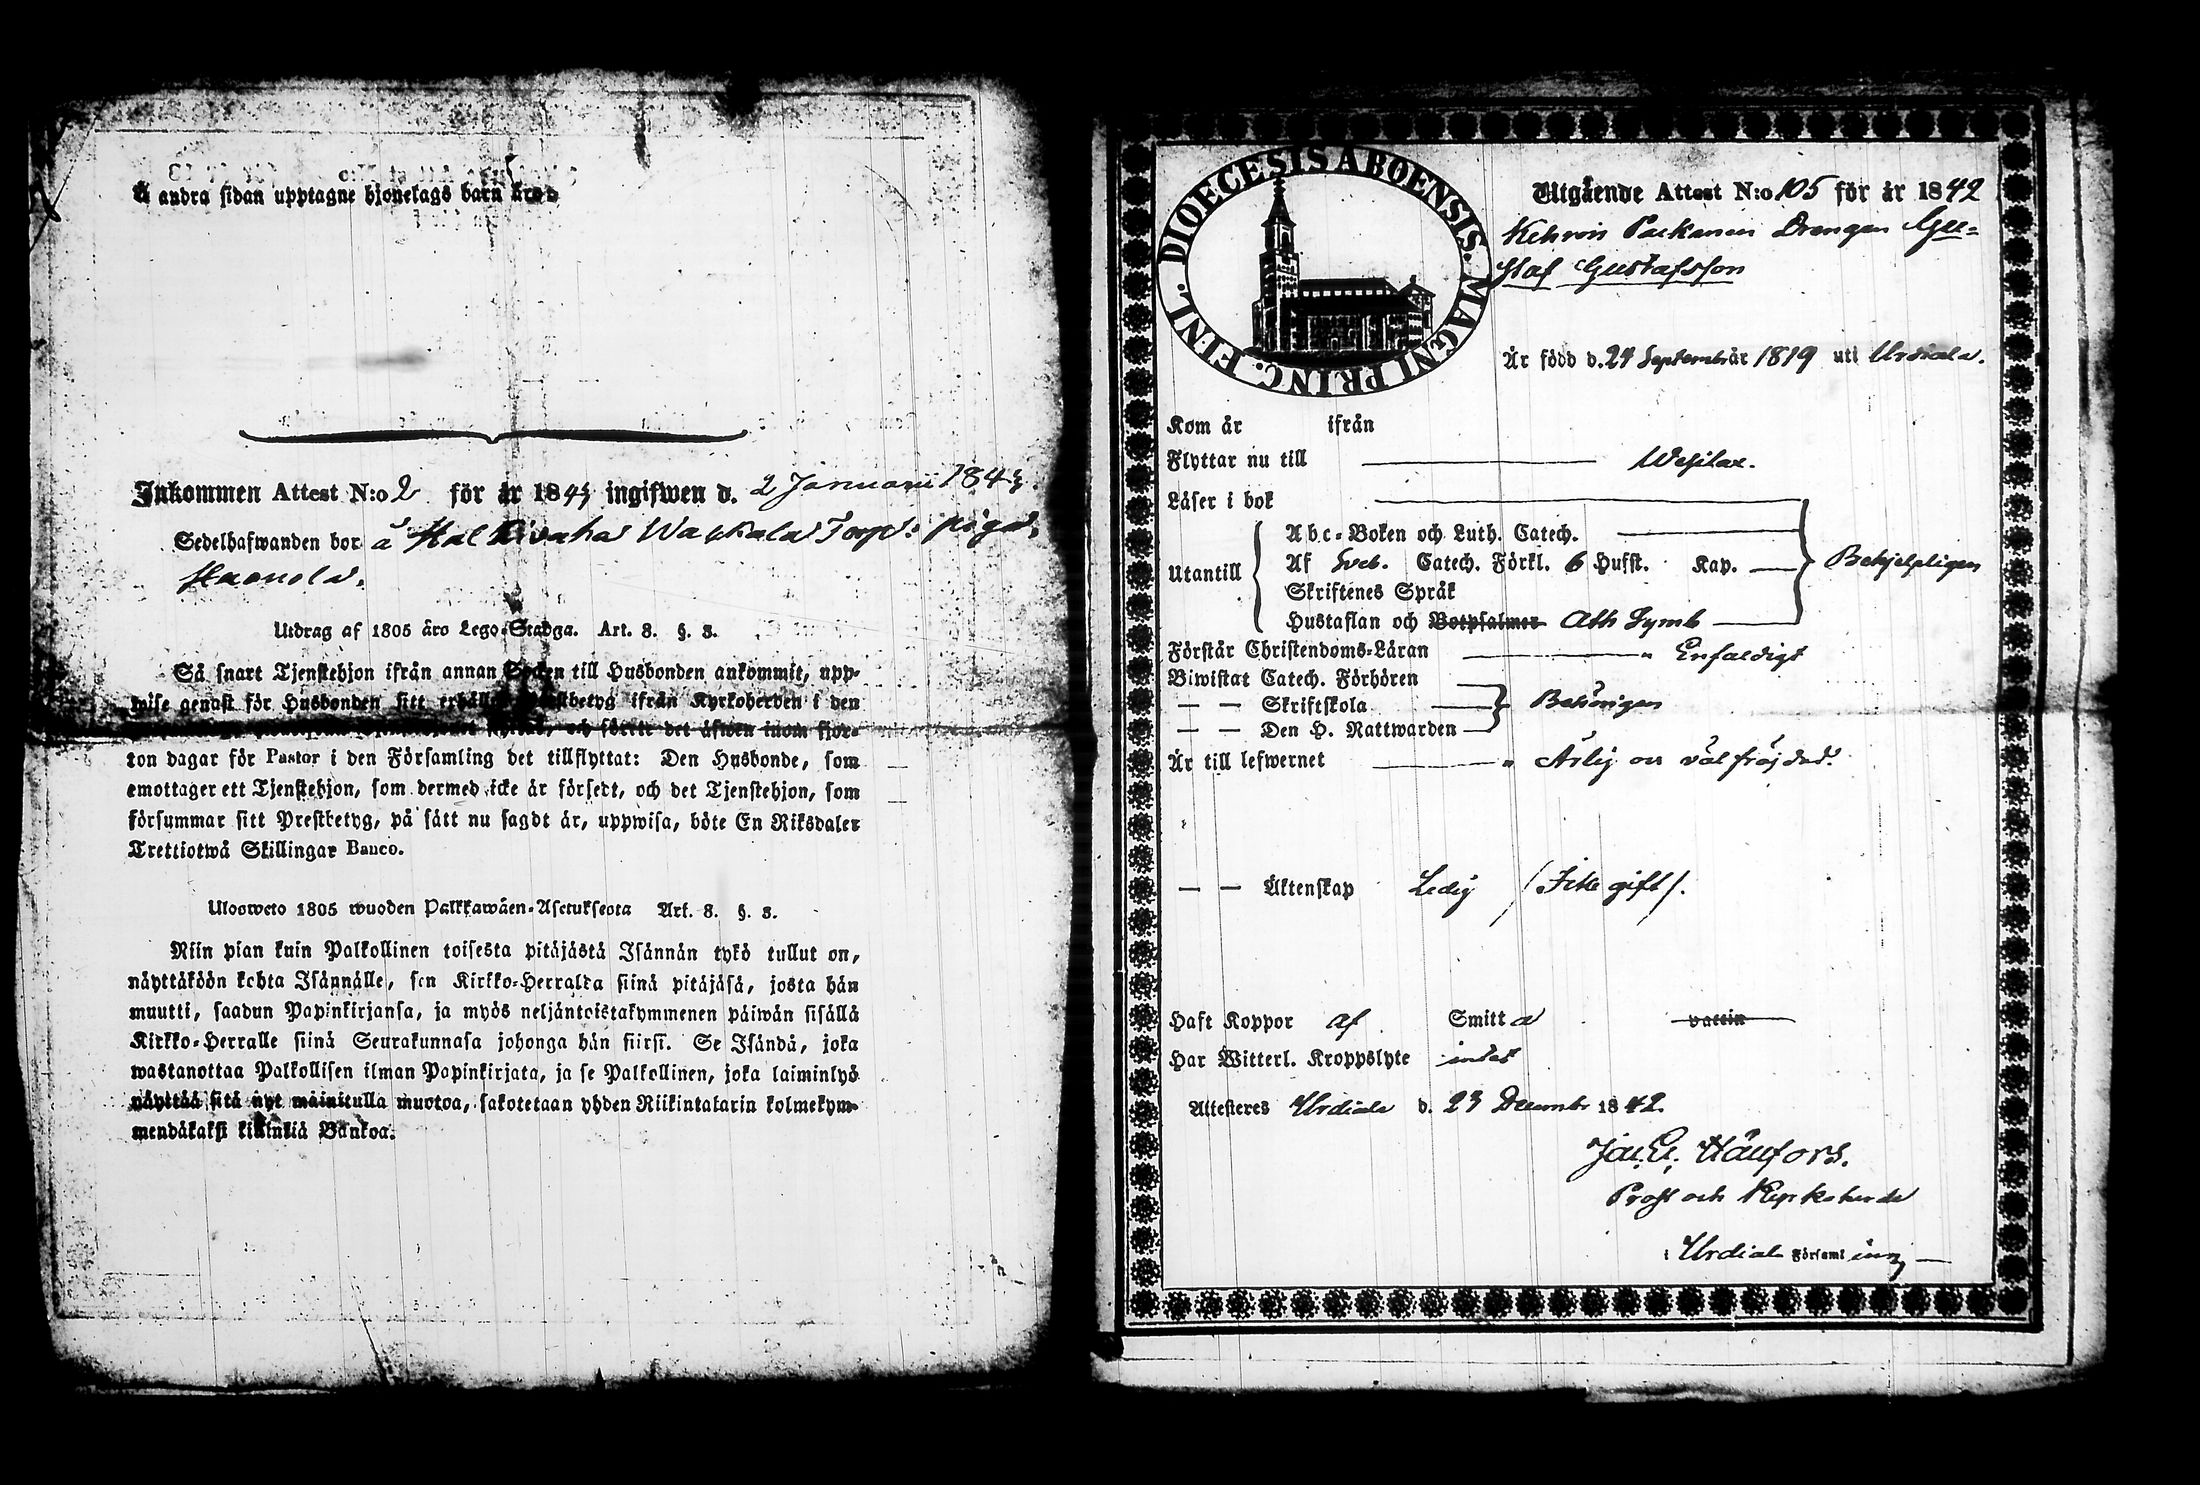 Å andra sidan upptagne hjonelags barn äro
Inkommen Attest N:o 2 för år 1843 ingifwen d. 2 Januarii 1843.
Sedelhafwanden bor å
Utdrag af 1805 års Lego-Stadga. Art. 8. §. 3.
Så snart Tjenstehjon ifrån annan Socken till Husbonden ankommit, upp-
wise genast för Husbonden sitt ifrån Kyrkoherden i den
och förete det äfwen inom fjor-
ton dagar för Pastor i den Församling det tillflyttat: Den Husbonde, som
emottager ett Tjenstehjon, som dermed icke är försedt, och det Tjenstehjon, som
försummar sitt Prestbetyg, på sätt nu sagdt är, uppwisa, böte En Riksdaler
Trettiotwå Skillingar Banco.
Ulosweto 1805 wuoden Palkkawäen-Asetuksesta Art. 8. §. 3.
Niin pian kuin Palkollinen toisesta pitäjästä Isännän tykö tullut on,
näyttäköön kohta Isännälle, sen Kirkko-Herralta siinä pitäjäsä, josta hän
muutti, saadun Papinkirjansa, ja myös neljäntoistakymmenen päiwän sisällä
Kirkko-Herralle siinä Seurakunnasa johonga hän siirsi. Se Isändä, joka
wastanottaa Palkollisen ilman Papinkirjata, ja se Palkollinen, joka laiminlyö
näyttää sitä nyt mainitulla muotoa, sakotetaan yhden Riikintalarin kolmekym-
mendäkaksi killinkiä Bankoa.
DIOECESIS ABOENSIS. MAGNI PRINC. FINL.
Utgående Attest N:o 105 för år 1842
Drengen Gu-
staf Gustafsson
Är född d. 24 September år 1819 uti Urdiala.
Kom år ifrån
Flyttar nu till Wesilax.
Läser i bok
Abc-Boken och Luth. Catech.
Utantill Af Sveb. Catech. Förkl. 6 Hufst. Kap. Behjelpligen
Skriftenes Språk
Hustaflan och Botpsalmer Ath Symb
Förstår Christendoms-Läran Enfaldigt
Biwistat Catech. Förhören
— — Skriftskola Behörigen
— — Den H. Nattwarden
Är till lefwernet Ärlig och välfräjdad.
— — Äktenskap Ledig /Icke gift/.
Haft Koppor af Smitta vaccin
Har Witterl. Kroppslyte intet
Attesteres Urdiala d. 23 December 1842.
Prost och Kyrkoherde
i Urdiala Församling